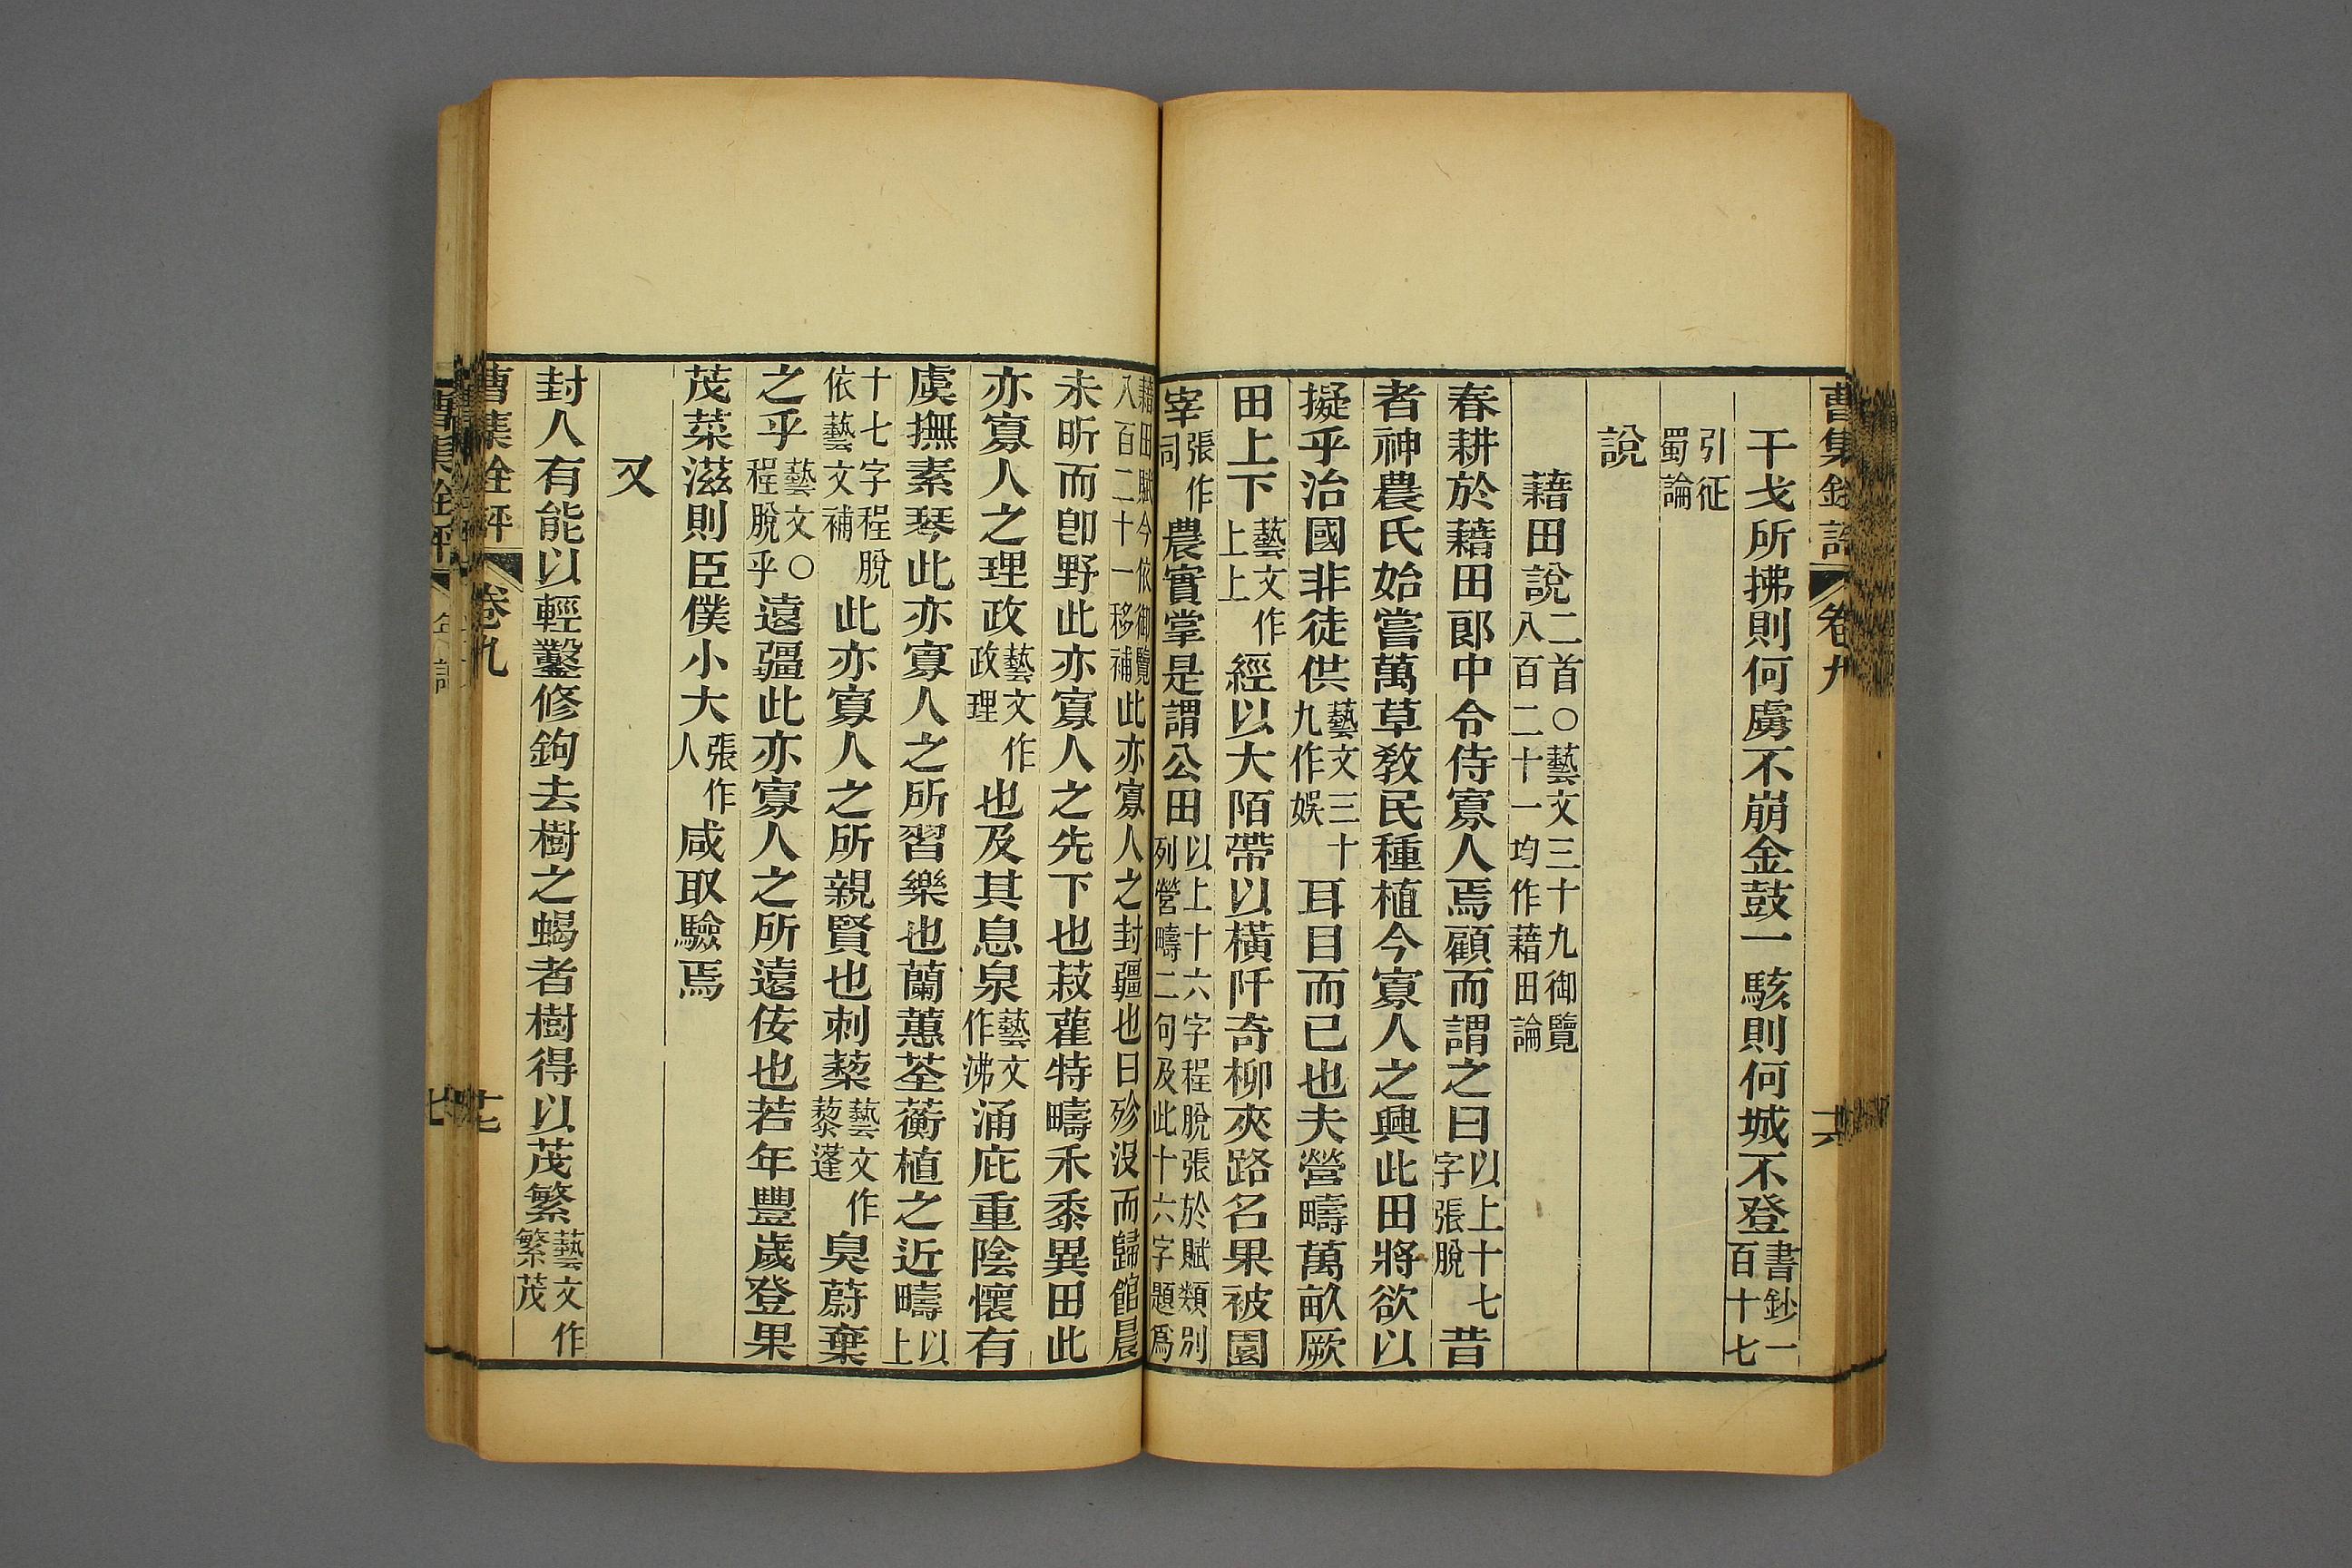 曹集銓評 卷九 十六
干戈所拂則何虜不崩金鼓一駭則何城不登書鈔一百十七
引征蜀論
說
藉田說二首○藝文三十九御覽八百二十一均作藉田論
春耕於藉田郎中令侍寡人焉顧而謂之曰以上十七字張脫昔
者神農氏始嘗萬草教民種植今寡人之興此田將欲以
擬乎治國非徒供藝文三十九作娛耳目而已也夫營疇萬畝厥
田上下藝文作上上經以大陌帶以橫阡奇柳夾路名果被園
宰張作司農實掌是謂公田以上十六字程脫張於賦類別列營疇二句及此十六字題為
藉田賦今依御覽八百二十一移補此亦寡人之封疆也日殄沒而歸館晨
未昕而卽野此亦寡人之先下也菽藿特疇禾黍異田此
亦寡人之理政藝文作政理也及其息泉藝文作沸涌庇重陰懷有
虞撫素琴此亦寡人之所習樂也蘭蕙荃蘅植之近疇以上
十七字程脫依藝文補此亦寡人之所親賢也刺藜藝文作藜蓬臭蔚棄
之乎藝文○程脫乎遠疆此亦寡人之所遠佞也若年豐歲登果
茂菜滋則臣僕小大張作人咸取驗焉
又
封人有能以輕鑿修鉤去樹之蝎者樹得以茂繁藝文作繁茂
曹集銓評 卷九 十七